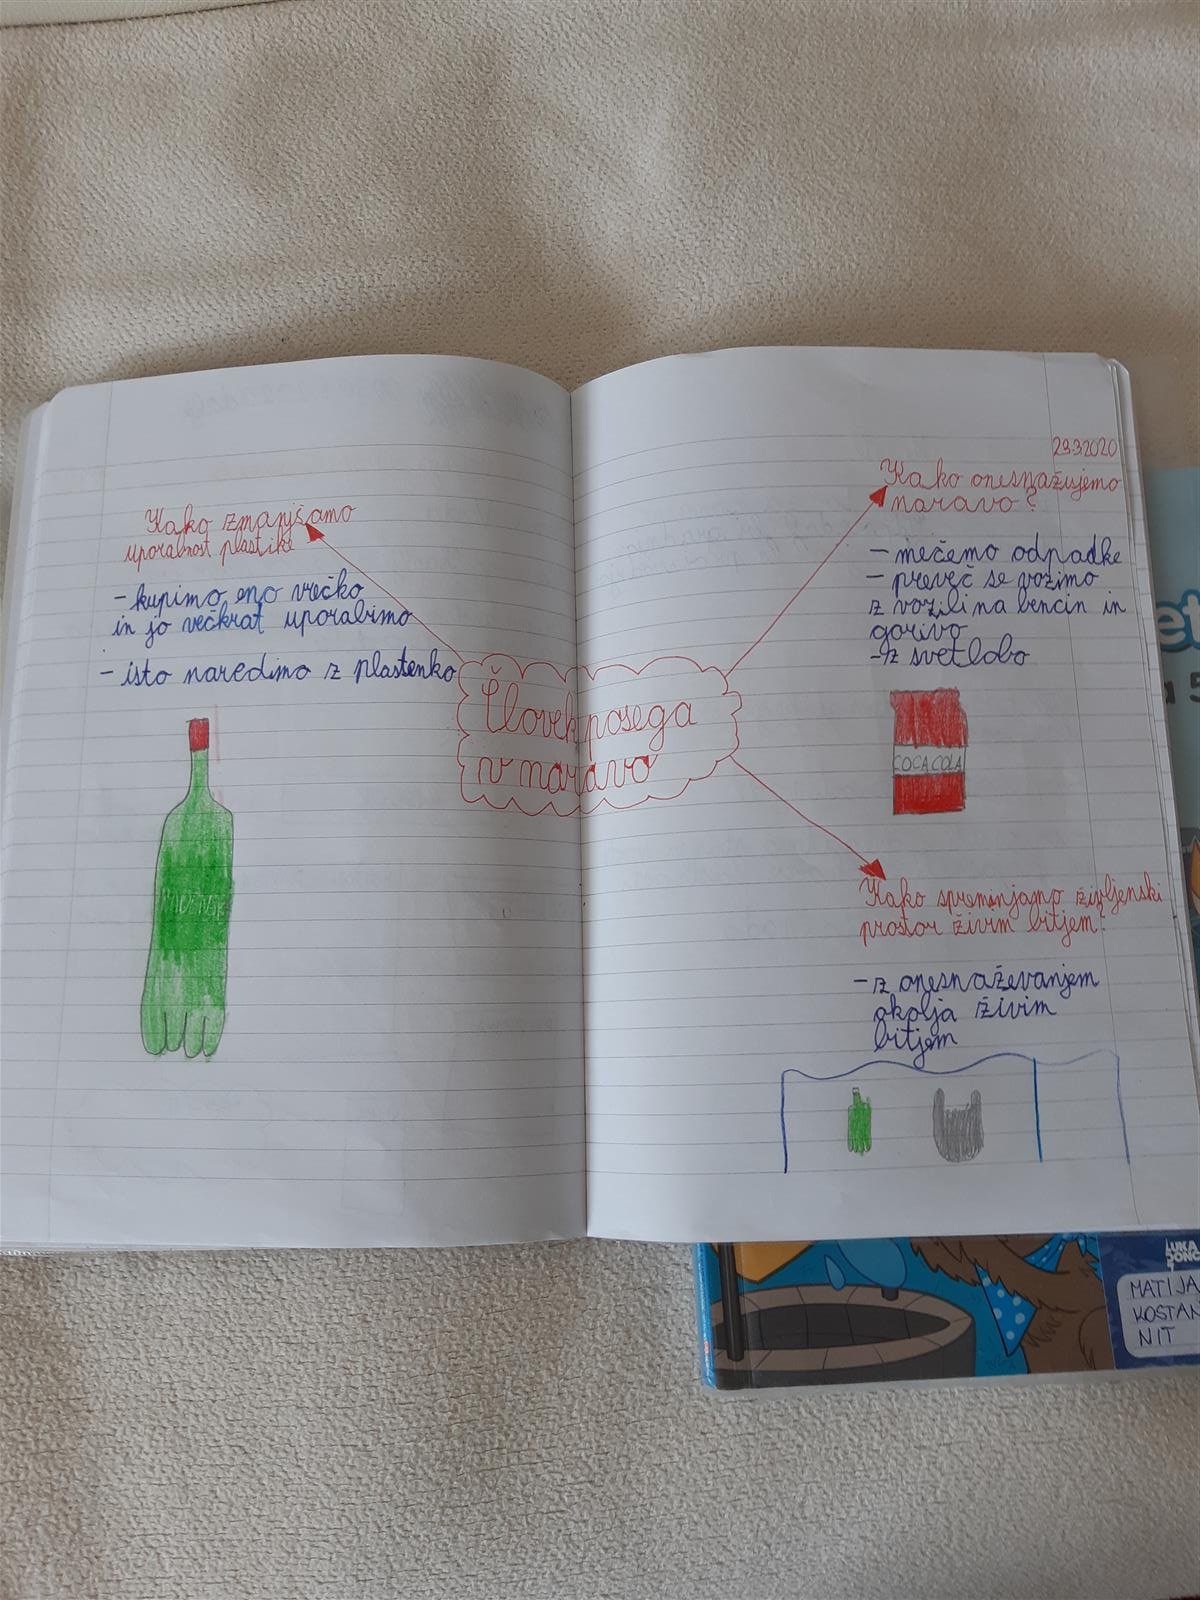 23.3.2020
Kako zmanjšamo
uporabnost plastike
- kupimo eno vrečko
in jo večkrat uporabimo
- isto naredimo z plastenko
Človek posega
v naravo
Kako onesnažujemo
naravo?
- mečemo odpadke
- preveč se vozimo
z vozili na bencin in
gorivo
- z svetlobo
COCA COLA
Kako spreminjamo življenski
prostor živim bitjem?
- z onesnaževanjem
okolja živim
bitjem
LUKA
MATIJA
KOSTAN
NIT